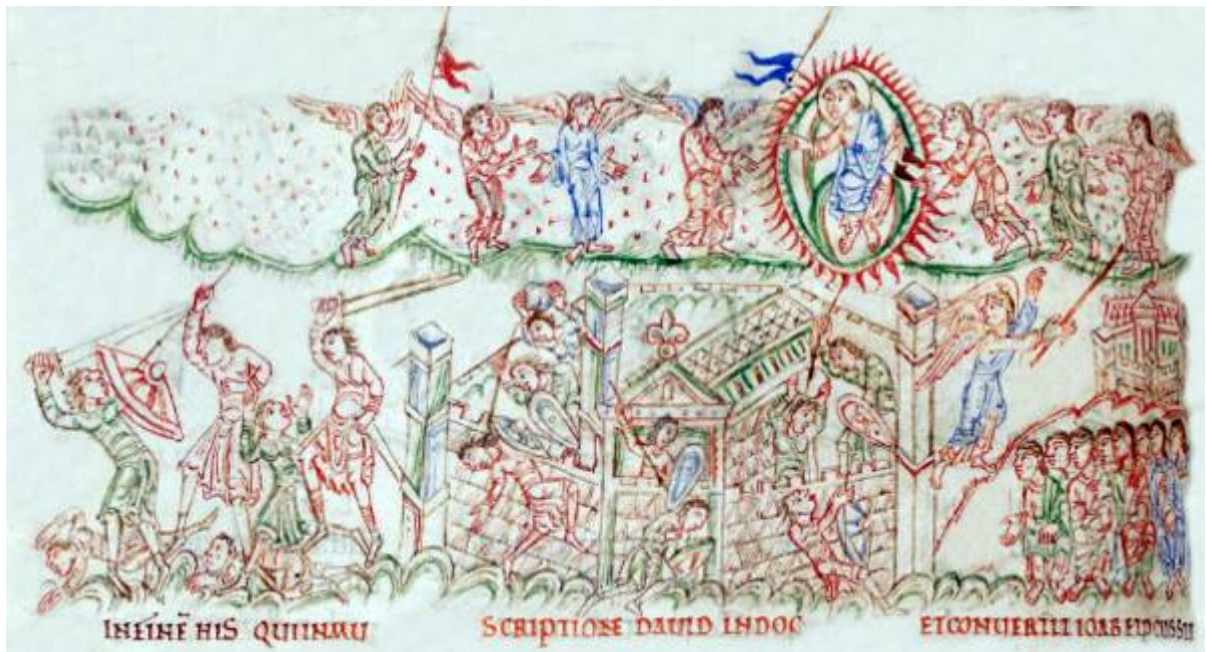 INFINĒ HIS QUIINMU SCRIPTIONE DAUID INDOC ETCONUERTIT IOAB ETPCUSSIT